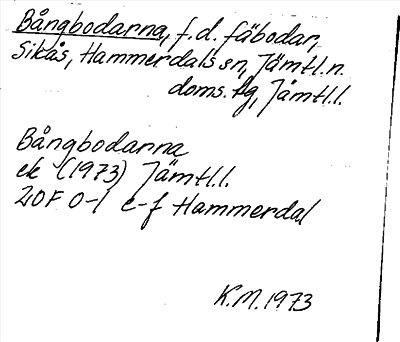 Bångbodarna, f.d. fäbodar,
Sikås, Hammerdals sn, Jämtl.n.
doms.tg, Jämtl.l.
Bångbodarna
ek (1973) Jämtl.l.
20F 0-1 e-f Hammerdal
K.M. 1973